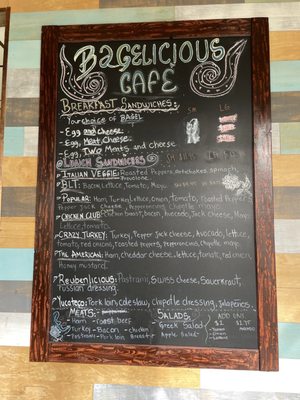 BAGELICIOUS
CAFÉ
BREAKFAST SANDWICHES: SM LG
Your choice of BAGEL
- Egg and cheese
- Egg, Meat, Cheese
- Egg, Two Meats and cheese
LUNCH SANDWICHES
ITALIAN VEGGIE: Roasted Peppers, Artichokes, spinach,
Provolone
BLT: Bacon, Lettuce, Tomato, Mayo
POPULAR: Ham, Turkey, Lettuce, Onion, Tomato, Roasted Peppers
Pepper Jack Cheese, Pepperoncini, Chipotle mayo
CHICKEN CLUB: Chicken breast, bacon, Avocado, Jack Cheese, Mayo
Lettuce, tomato.
CRAZY TURKEY: Turkey, Pepper Jack cheese, Avocado, lettuce,
tomato, red onions, roasted peppers, Pepperoncini, chipotle, mayo.
THE AMERICAN: Ham, cheddar cheese, lettuce, tomato, red onion,
Honey mustard.
Reubenlicious: Pastrami, Swiss cheese, Sauerkraut,
Russian dressing.
Yucateco: Pork loin, cole slaw, chipotle dressing, jalapeños.
MEATS: SALADS: ADD ONS
- Ham - roast beef - Greek Salad $2
- Turkey - Bacon - chicken - Apple Salad
- Pastrami - Pork loin Breast